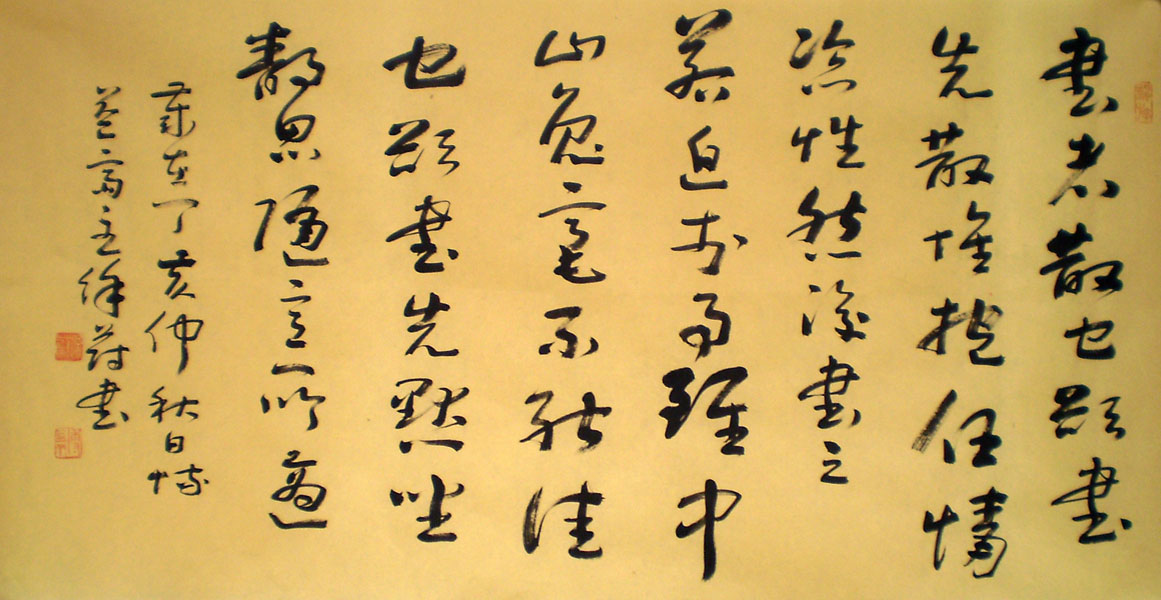 書者散也欲書
先散懷抱任情
恣性然後書之
若迫於事雖中
山兔毫不能佳
也欲書先默坐
靜思隨意所適
歲在丁亥仲秋日
齋主徐書